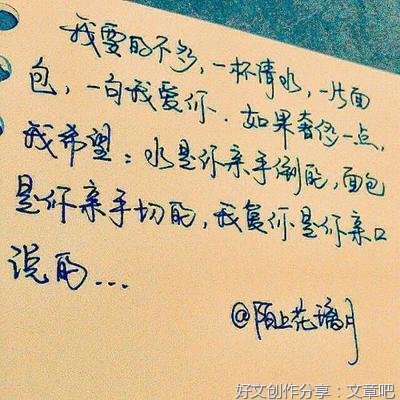 我要的不多，一杯清水，一片面
包，一句我爱你．如果奢侈一点，
我希望：水是你亲手倒的，面包
是你亲手切的，我爱你是你亲口
说的...
@陌上花璃月
好文创作分享：文章吧